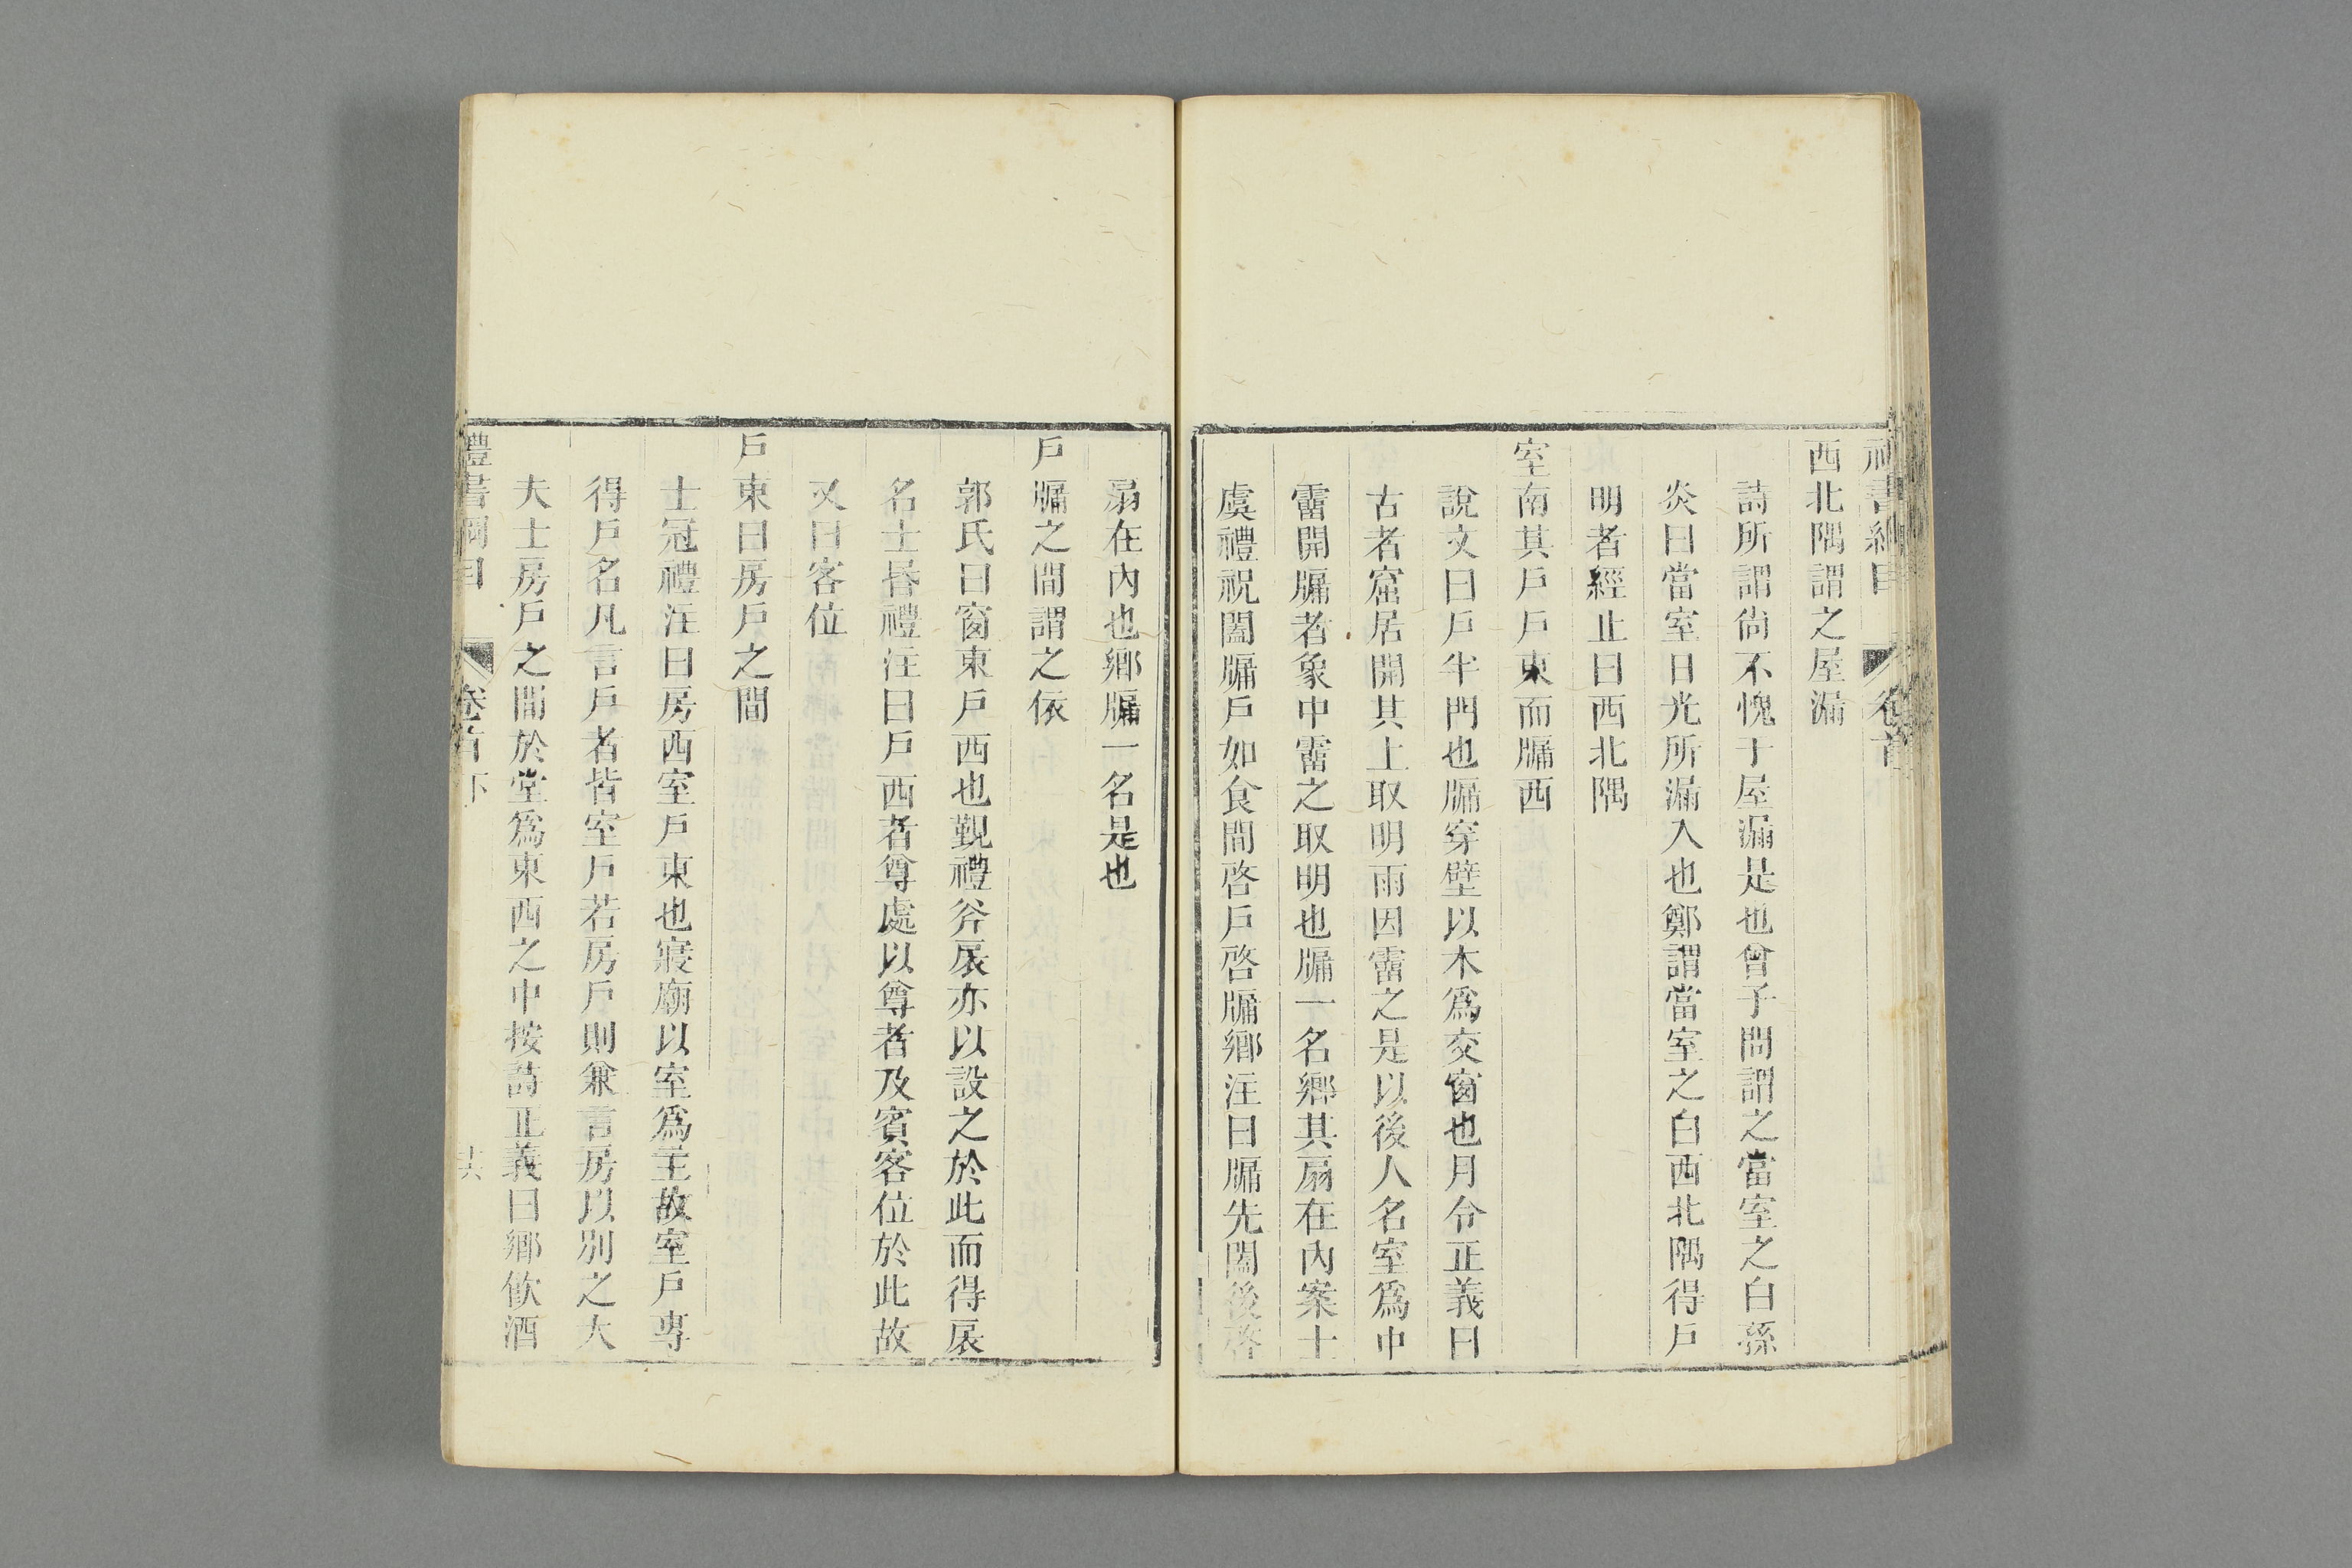 禮書綱目 卷首
西北隅謂之屋漏
詩所謂尙不愧于屋漏是也曾子問謂之當室之白孫
炎曰當室日光所漏入也鄭謂當室之白西北隅得戶
明者經止曰西北隅
室南其戶戶東而牖西
說文曰戶半門也牖穿壁以木爲交窗也月令正義曰
古者窟居開其上取明雨因霤之是以後人名室爲中
霤開牖者象中霤之取明也牖一名鄉其扇在內案士
虞禮祝闔牖戶如食間啓戶啓牖鄉注曰牖先闔後啓
扇在內也鄉牖一名是也
戶牖之間謂之依
郭氏曰窗東戶西也覲禮斧扆亦以設之於此而得扆
名士昏禮注曰戶西者尊處以尊者及賓客位於此故
又曰客位
戶東曰房戶之間
士冠禮注曰房西室戶東也寢廟以室爲主故室戶專
得戶名凡言戶者皆室戶若房戶則兼言房以別之大
夫士房戶之間於堂爲東西之中按詩正義曰鄉飮酒
禮書綱目 卷首下 十六